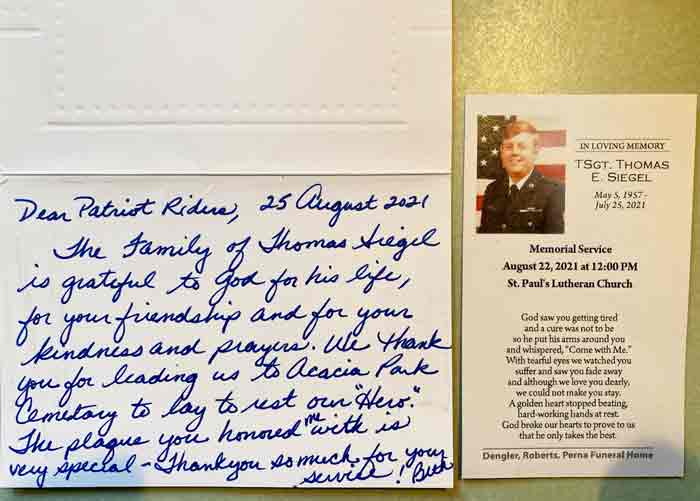 Dear Patriot Riders, 25 August 2021
The Family of Thomas Siegel
is grateful to God for his life,
for your friendship and for your
kindness and prayers. We thank
you for leading us to Acacia Park
Cemetary to lay to rest our "Hero."
The plaque you honored me with is
very special - Thank you so much for your
service! Beth
IN LOVING MEMORY
TSGT. THOMAS
E. SIEGEL
May 5, 1957 -
July 25, 2021
Memorial Service
August 22, 2021 at 12:00 PM
St. Paul's Lutheran Church
God saw you getting tired
and a cure was not to be
so he put his arms around you
and whispered, "Come with Me."
With tearful eyes we watched you
suffer and saw you fade away
and although we love you dearly,
we could not make you stay.
A golden heart stopped beating,
hard-working hands at rest.
God broke our hearts to prove to us
that he only takes the best.
Dengler, Roberts, Perna Funeral Home